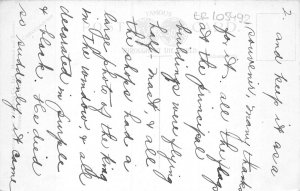 2. and keep it as a
souvenir, many thanks
for it. all the flags
at the principal
buildings were flying
half mast, & all
the shops had a
large photo of the King
in the window, & all
decorated in purple
& black. He died
so suddenly, it came
ER 105492